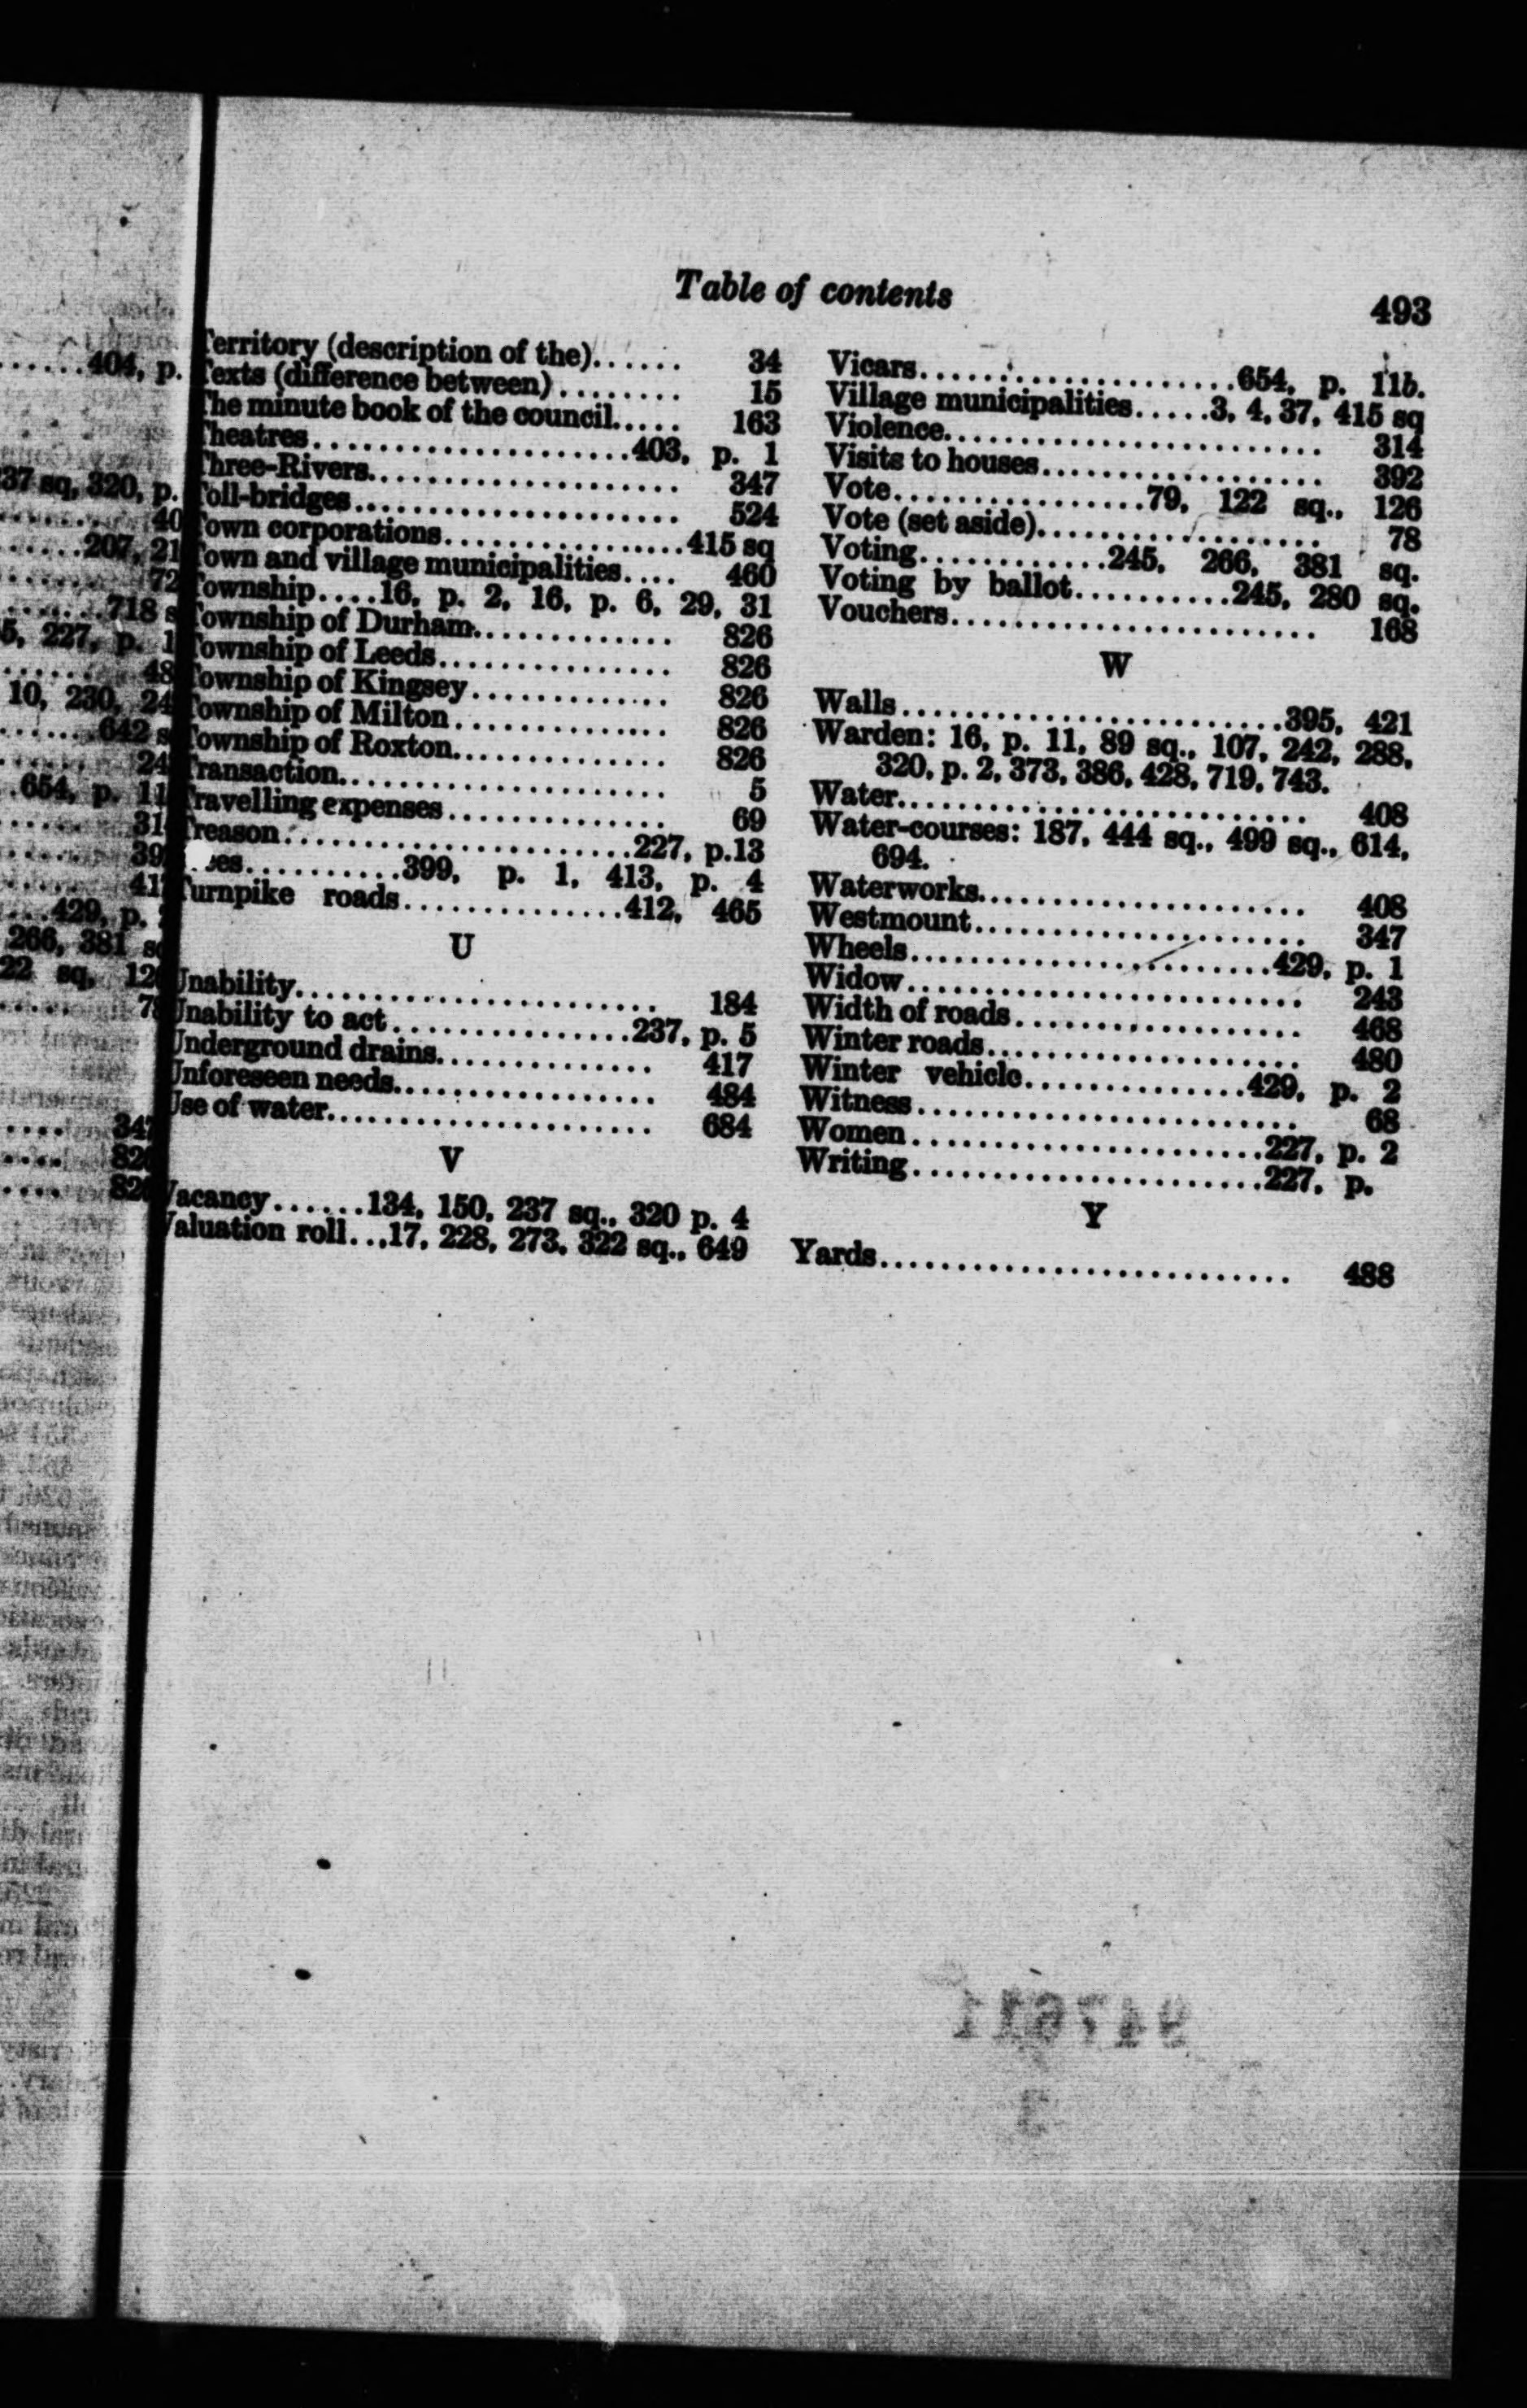 Table of contents
493
Territory (description of the)...... 34
Texts (difference between)........ 15
The minute book of the council..... 163
Theatres....................403, p. 1
Three-Rivers.................... 347
Toll-bridges..................... 524
Town corporations................415 sq
Town and village municipalities.... 460
Township....16, p. 2, 16, p. 6, 29, 31
Township of Durham............. 826
Township of Leeds............... 826
Township of Kingsey............. 826
Township of Milton.............. 826
Township of Roxton.............. 826
Transaction..................... 5
Travelling expenses.............. 69
Treason......................227, p.13
es..........399, p. 1, 413, p. 4
Turnpike roads..............412, 465
U
Unability....................... 184
Unability to act...............237, p. 5
Underground drains.............. 417
Unforeseen needs................. 484
Use of water..................... 684
V
Vacancy......134, 150, 237 sq., 320 p. 4
Valuation roll...17, 228, 273, 322 sq., 649
Vicars....................654, p. 11b.
Village municipalities.....3, 4, 37, 415 sq
Violence........................ 314
Visits to houses.................. 392
Vote................79, 122 sq., 126
Vote (set aside).................. 78
Voting............245, 266, 381 sq.
Voting by ballot..........245, 280 sq.
Vouchers....................... 168
W
Walls........................395, 421
Warden: 16, p. 11, 89 sq., 107, 242, 288,
320, p. 2, 373, 386, 428, 719, 743.
Water.......................... 408
Water-courses: 187, 444 sq., 499 sq., 614,
694.
Waterworks..................... 408
Westmount..................... 347
Wheels.......................429, p. 1
Widow......................... 243
Width of roads................... 468
Winter roads.................... 480
Winter vehicle..............429, p. 2
Witness........................ 68
Women......................227, p. 2
Writing......................227, p.
Y
Yards.......................... 488
404, p.
37 sq, 320, p.
40
207, 21
72
718 s
5, 227, p. 1
48
10, 230, 24
642 s
24
654, p. 11
31
39
41
429, p.
266, 381 sq
22 sq, 12
78
347
826
826
947611